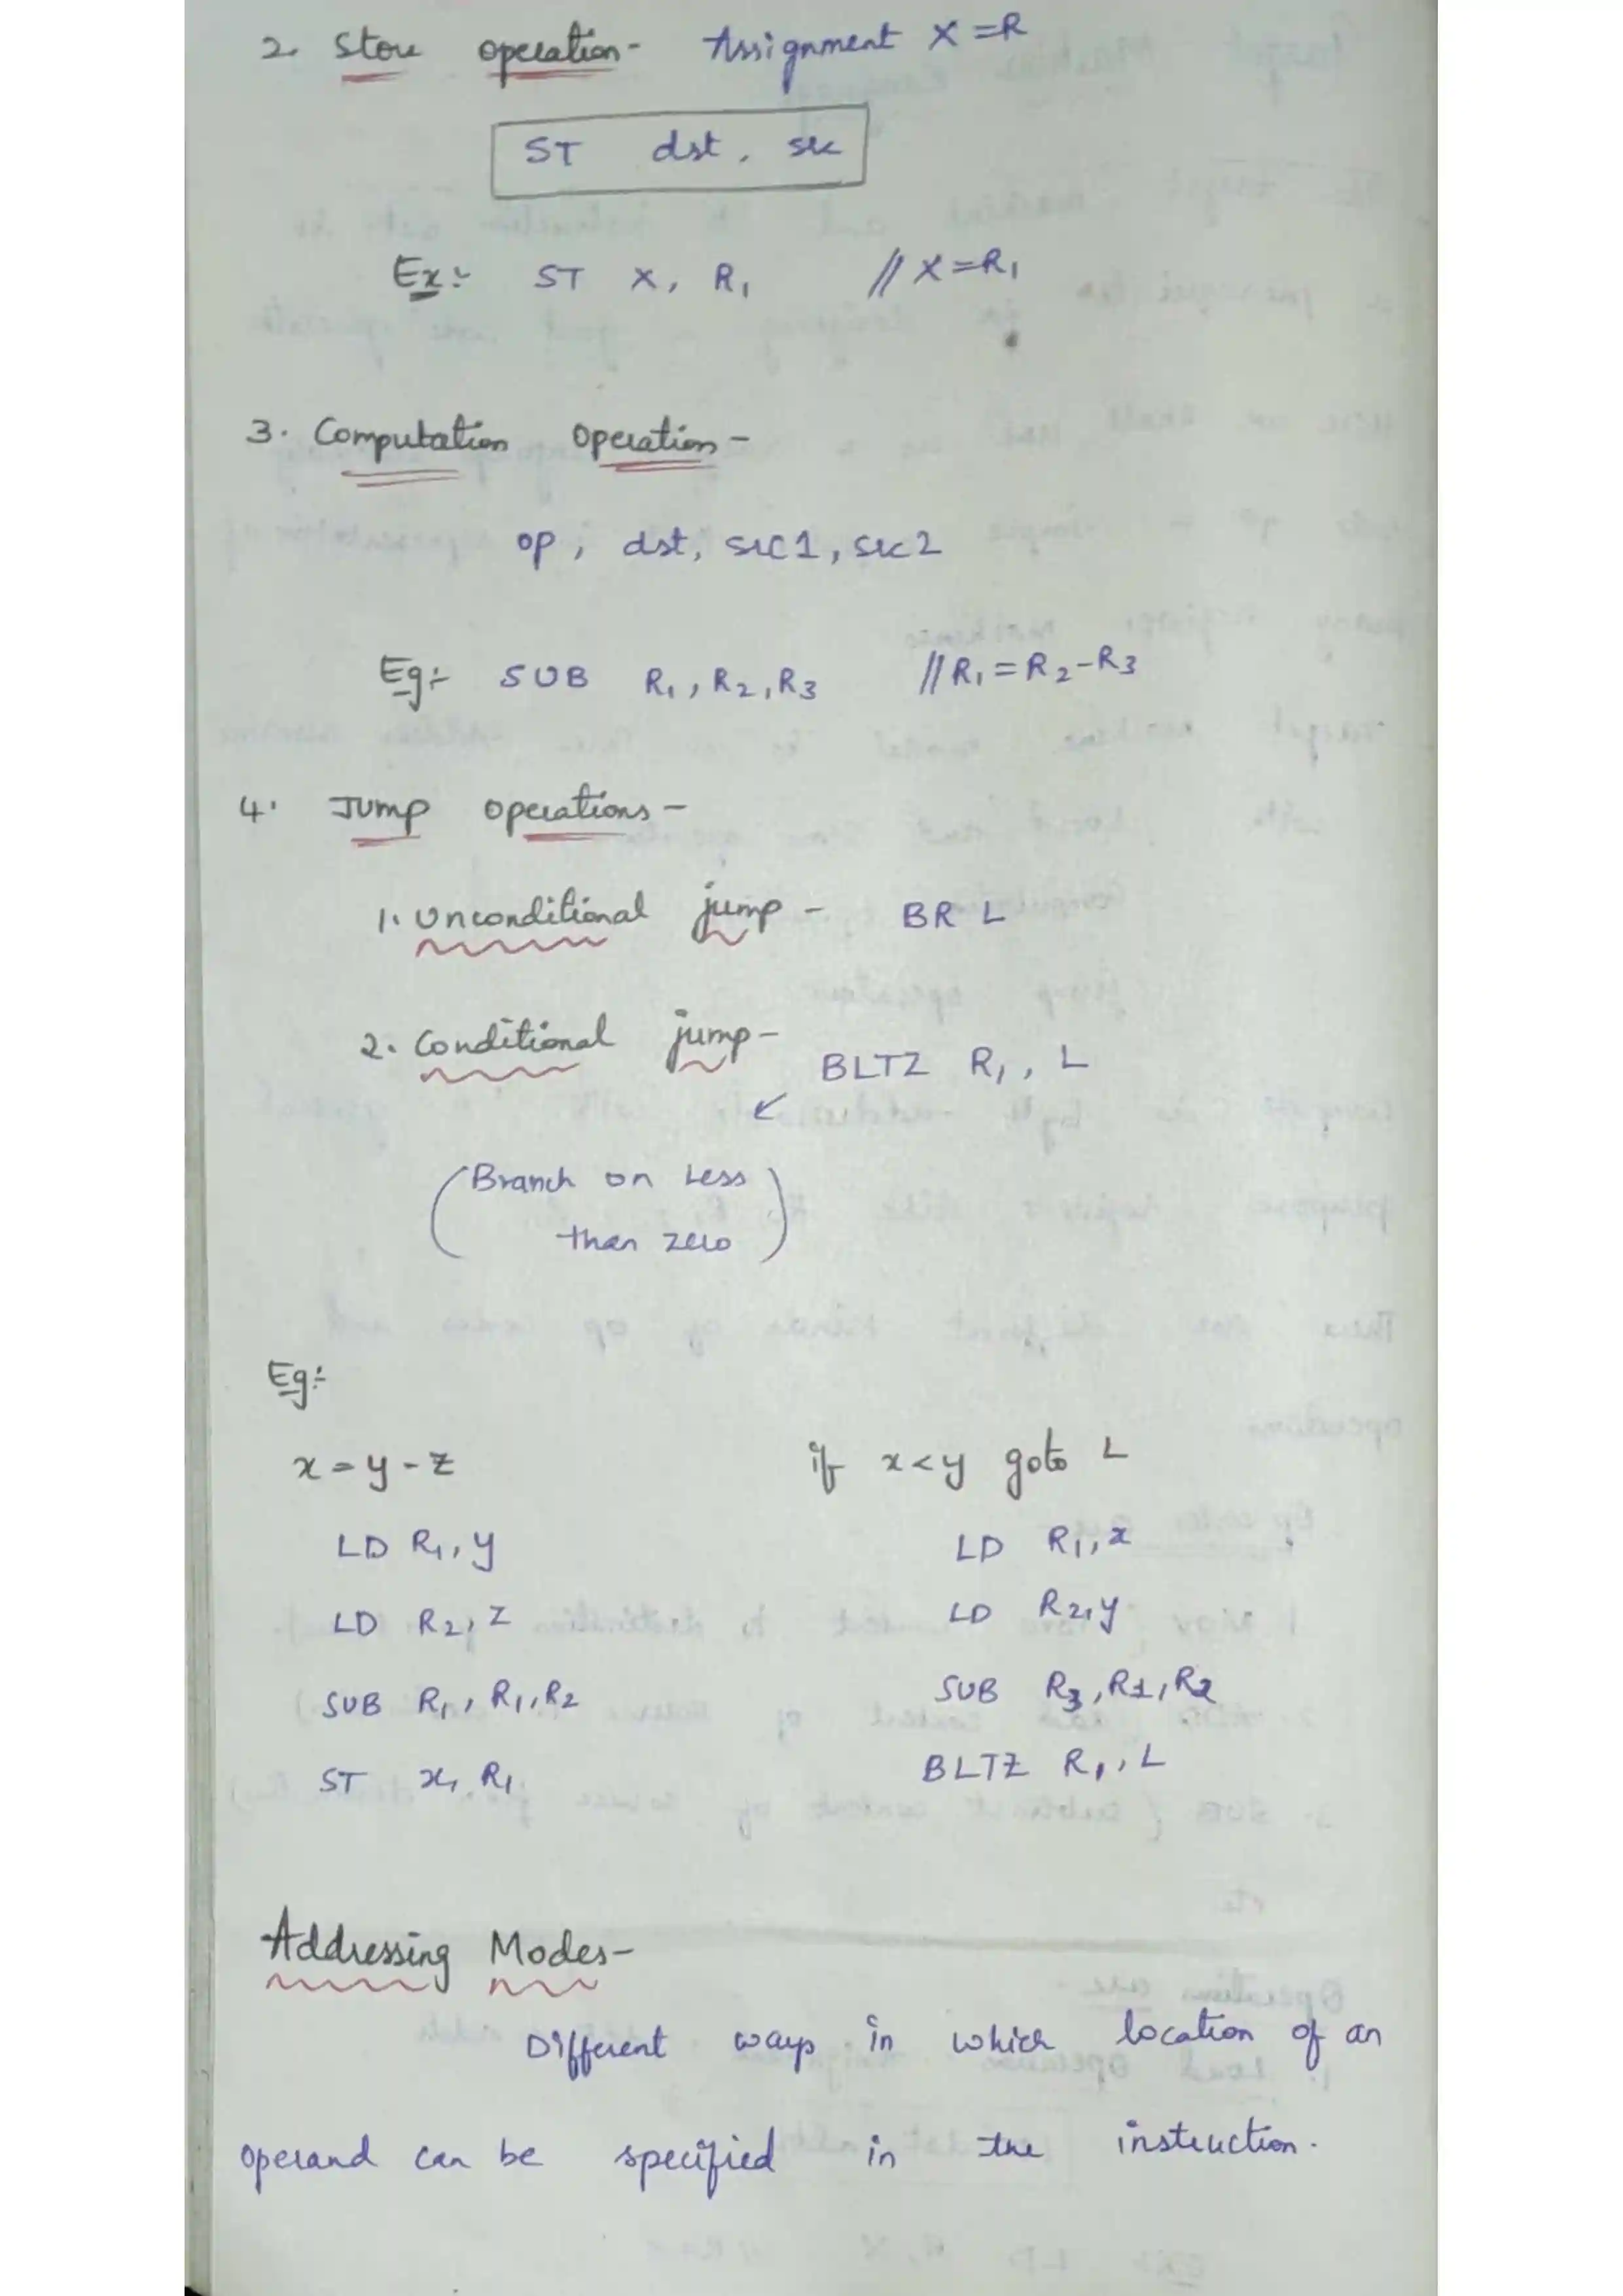 2. Store operation- Assignment X=R
ST dst, src
Ex:- ST X, R1 // X=R1
3. Computation Operation-
op, dst, src1, src2
Eg:- SUB R1, R2, R3 // R1=R2-R3
4. Jump operations-
1. Unconditional jump - BR L
2. Conditional jump-
BLTZ R1, L
(Branch on Less
than zero)
Eg:-
x=y-z
LD R1, y
LD R2, z
SUB R1, R1, R2
ST x, R1
if x<y goto L
LD R1, x
LD R2, y
SUB R3, R1, R2
BLTZ R1, L
Addressing Modes-
Different ways in which location of an
operand can be specified in the instruction.